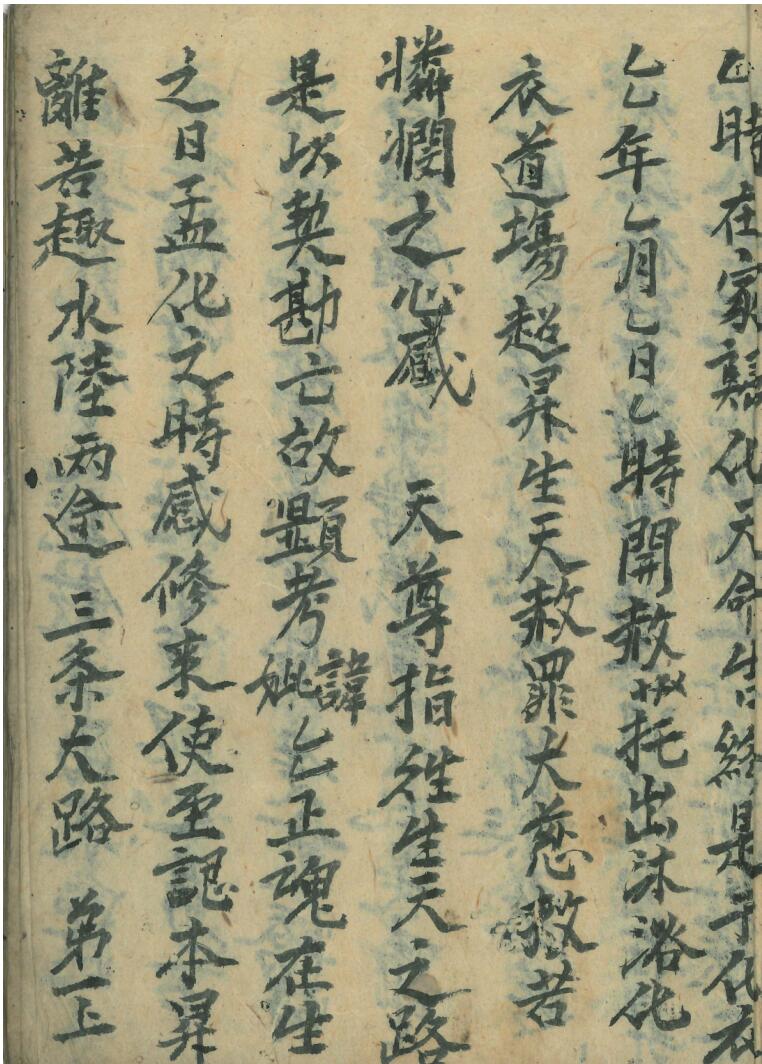 乙時在家化天命告終是于化衣
乙乙年乙月乙日乙時開赦托出沐浴化
衣道塲超昇生天赦罪大慈救苦
憐憫之心感 天尊指徃生天之路
是以契勘亡故顕考妣諱乙正魂在生
之日孟化之時感修来使至認本昇
離苦趣水陸両途三条大路 第一上